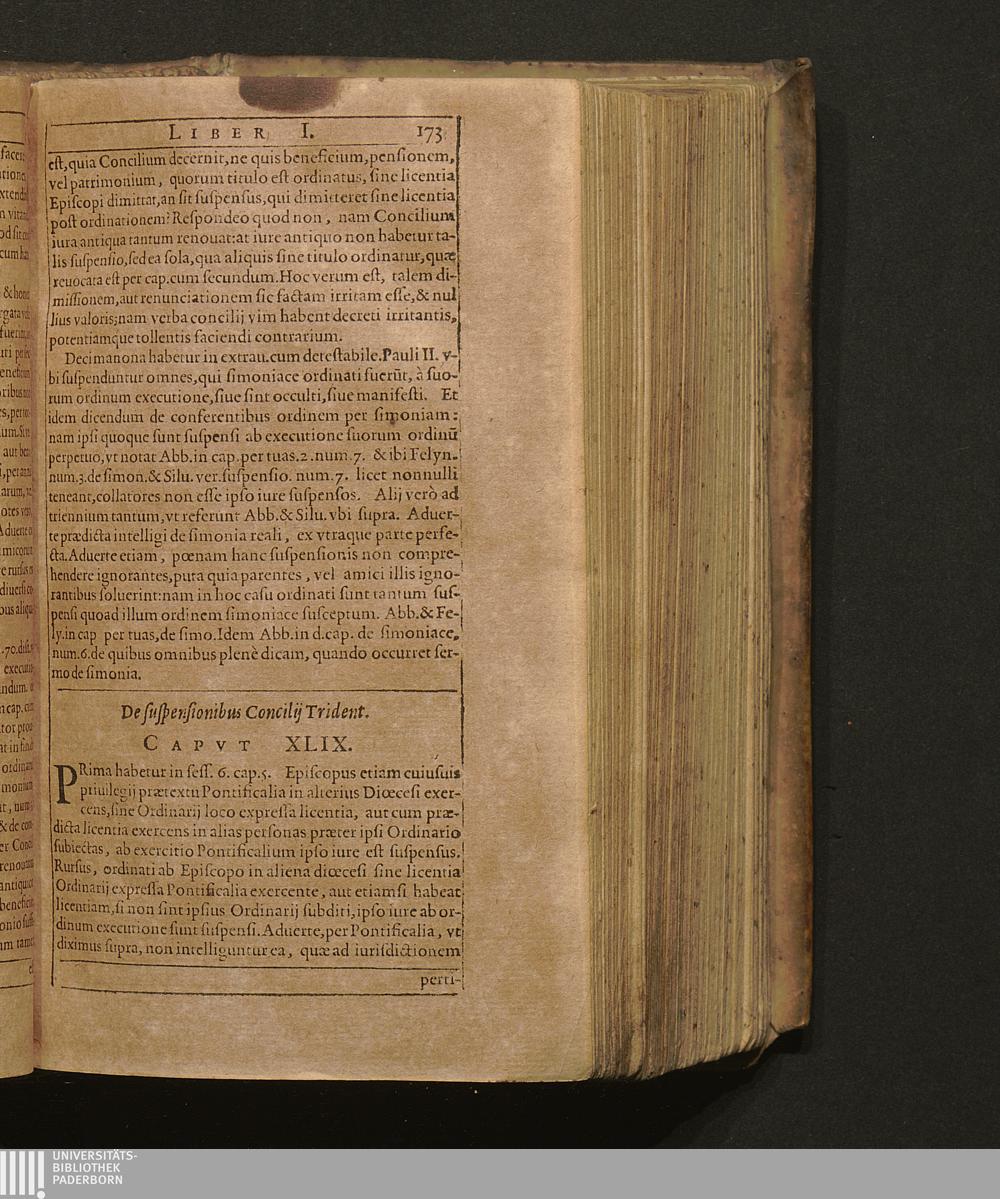 LIBER I. 173
est, quia Concilium decernit, ne quis beneficium, pensionem,
vel patrimonium, quorum titulo est ordinatus, sine licentia
Episcopi dimittat, an sit suspensus, qui dimitteret sine licentia
post ordinationem? Respondeo quod non, nam Concilium
iura antiqua tantum renouat: at iure antiquo non habetur ta-
lis suspensio, sed ea sola, qua aliquis sine titulo ordinatur, quæ
reuocata est per cap. cum secundum. Hoc verum est, talem di-
missionem, aut renunciationem sic factam irritam esse, & nul
lius valoris; nam verba concilij vim habent decreti irritantis,
potentiamque tollentis faciendi contrarium.
Decimanona habetur in extrau. cum detestabile. Pauli II. v-
bi suspenduntur omnes, qui simoniace ordinati fuerũt, à suo-
rum ordinum executione, siue sint occulti, siue manifesti. Et
idem dicendum de conferentibus ordinem per simoniam:
nam ipsi quoque sunt suspensi ab executione suorum ordinũ
perpetuo, vt notat Abb. in cap. per tuas. 2. num. 7. & ibi Felyn.
num. 3. de simon. & Silu. ver. suspensio. num. 7. licet nonnulli
teneant, collatores non esse ipso iure suspensos. Alij verò ad
triennium tantum, vt referunt Abb. & Silu. vbi supra. Aduer-
te prædicta intelligi de simonia reali, ex vtraque parte perfe-
cta. Aduerte etiam, pœnam hanc suspensionis non compre-
hendere ignorantes, puta quia parentes, vel amici illis igno-
rantibus soluerint: nam in hoc casu ordinati sunt tantum sus-
pensi quoad illum ordinem simoniace susceptum. Abb. & Fe-
ly. in cap per tuas, de simo. Idem Abb. in d. cap. de simoniace,
num. 6. de quibus omnibus plenè dicam, quando occurret ser-
mo de simonia.
De suspensionibus Concilij Trident.
CAPVT XLIX.
PRima habetur in sess. 6. cap. 5. Episcopus etiam cuiusuis
priuilegij prætextu Pontificalia in alterius Diœcesi exer-
cens, sine Ordinarij loco expressa licentia, aut cum præ-
dicta licentia exercens in alias personas præter ipsi Ordinario
subiectas, ab exercitio Pontificalium ipso iure est suspensus.
Rursus, ordinati ab Episcopo in aliena diœcesi sine licentia
Ordinarij expressa Pontificalia exercente, aut etiamsi habeat
licentiam, si non sint ipsius Ordinarij subditi, ipso iure ab or-
dinum executione sunt suspensi. Aduerte, per Pontificalia, vt
diximus supra, non intelliguntur ea, quæ ad iurisdictionem
perti-
UNIVERSITÄTS-
BIBLIOTHEK
PADERBORN